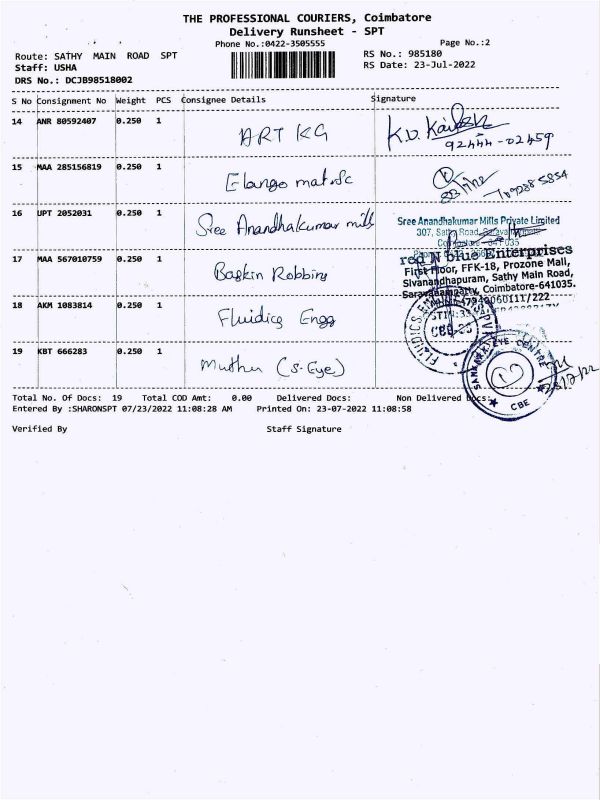 THE PROFESSIONAL COURIERS, Coimbatore
Delivery Runsheet - SPT
Phone No.:0422-3505555
Page No.:2
Route: SATHY MAIN ROAD SPT
RS No.: 985180
Staff: USHA
RS Date: 23-Jul-2022
DRS No.: DCJB98518002
S No Consignment No Weight PCS Consignee Details Signature
14 ANR 80592407 0.250 1 ART KG
92444-02459
15 MAA 285156819 0.250 1 Elango
16 UPT 2052031 0.250 1 Sree Anandhakumar mills
Sree Anandhakumar Mills Private Limited
307, Sathy Road,
17 MAA 567010759 0.250 1 Baskin Robbins
red N blue Enterprises
First Floor, FFK-18, Prozone Mall,
Sivanandhapuram, Sathy Main Road,
Saravanampatty, Coimbatore-641035.
18 AKM 1083814 0.250 1 Fluidics Engg
FLUIDICS
19 KBT 666283 0.250 1 Muthu (S-Eye)
SANKARA EYE CENTRE
CBE
Total No. Of Docs: 19 Total COD Amt: 0.00 Delivered Docs: Non Delivered Docs:
Entered By :SHARONSPT 07/23/2022 11:08:28 AM Printed On: 23-07-2022 11:08:58
Verified By Staff Signature